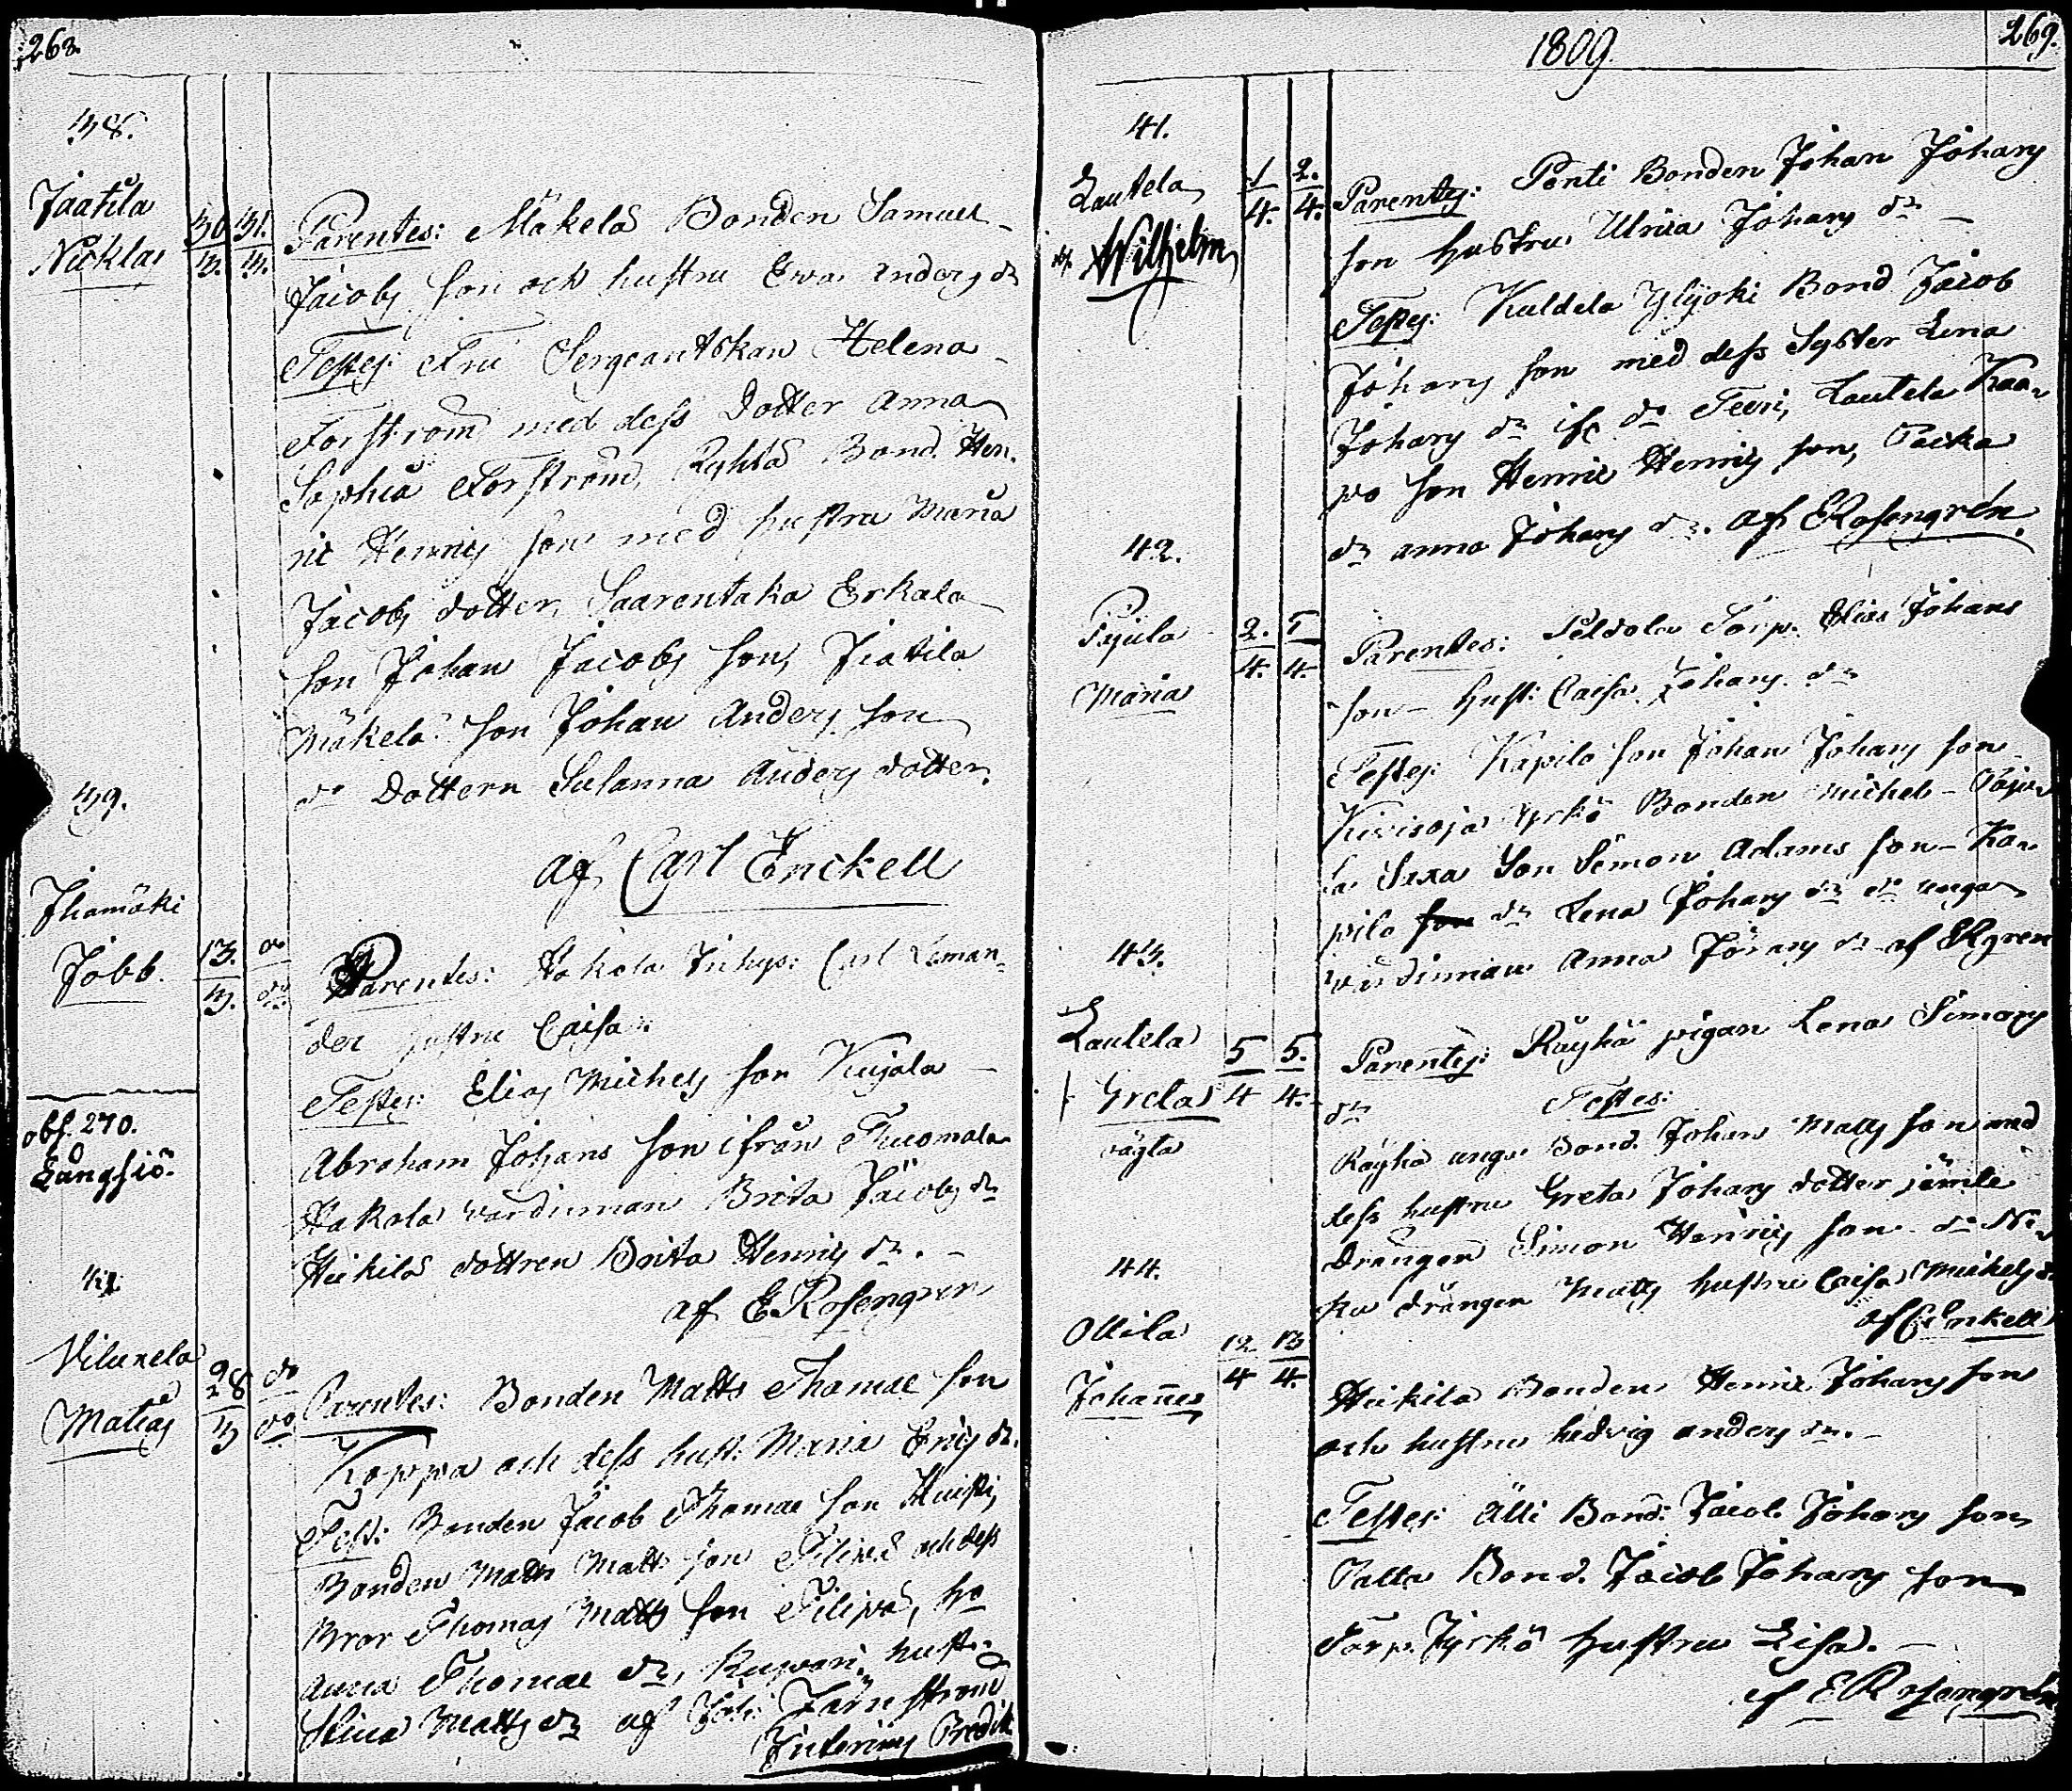 268.
38.
Jaatila
Nicklas
30 31.
3. 3.
Parentes: Mäkelä Bonden Samuel
Jacobs son och hustru Ewa Anders dr
Testes: Fru Sergeantskan Helena
Forström med dess Dotter Anna
Sophia Forström, Ryhtä Bond. Hen-
ric Henrics son med hustru Maria
Jacobs dotter, Saarentaka Erkala
son Johan Jacobs son, Jaatila
Mäkelä son Johan Anders son
do Dottern Susanna Anders dotter.
af Carl Enckell
39.
Ihamäki
Jobb.
13. do
3. do
Parentes: Hakola Inhys: Carl Leman-
der hustru Caisa
Testes: Elias Michels son Kujala
Abraham Johans son ifrån Tuomala
Hakola värdinnan Brita Jacobs dr
Heikilä dottren Brita Henrics dr.
af E Rosengren
obs. 270.
Långsiö.
Matias
28 do
3 do
Parentes: Bonden Matts Thomae son
Koppa och dess hust: Maria Erics dr.
Test: Bonden Jacob Thomae son
Bonden Matts Matts son och dess
Bror Thomas Matts son
Anna Thomae dr, hust:
Stina Matts dr af Joh: Järnström
Interims Predik
1809.
269.
41.
Lautela
Wilhelm
1 2.
4. 4.
Parentes: Penti Bonden Johan Johans
son hustru Ulrica Johans dr
Testes: Kuldela Ylijoki Bond Jacob
Johans son med dess Syster Lena
Johans dr do Lautela Kaa-
po son Henric Henrics son,
dr Anna Johans dr. af E Rosengrén.
42.
Pajula
Maria
2. 5
4. 4.
Parentes: Peldola Torp. Elias Johans
son hust: Caisa Johans dr
Testes: Kapila son Johan Johans son
Kivisoja Yrkö Bonden Michel - Paju-
la son Simon Adams son - Ka-
pila dr Lena Johans dr do unga
värdinnan Anna Görans dr af E Rgren
43.
Lautela
Greta
oägta
5 5.
4 4.
Parentes: Räyhä pigan Lena Simons
dr Testes:
Räyhä unga Bond. Johan Matts son med
dess hustru Greta Johans dotter jämte
Drängen Simon Henrics son do
drängen Matts hustru Caisa Michels dr
af C Enkell
44.
Ollila
Johannes
12 13
4 4.
Heikila Bonden Henric Johans son
och hustru hedvig anders dr.
Testes: Älli Bond: Jacob Johans son
Bond. Jacob Johans son
Torp. Jyrkö hustru Lisa.
af E Rosengrén